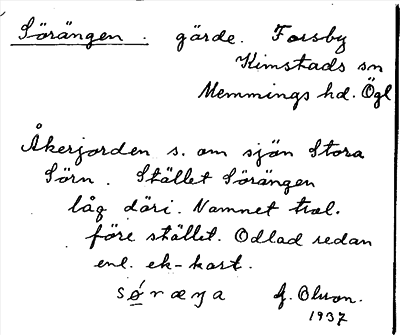 Sörängen. gärde. Forsby
Kimstads sn
Memmings hd. Ögl
Åkerjorden s. om sjön Stora
Sörn. Stället Sörängen
låg däri. Namnet trol.
före stället. Odlad redan
enl. ek-kart.
G. Olson.
1937